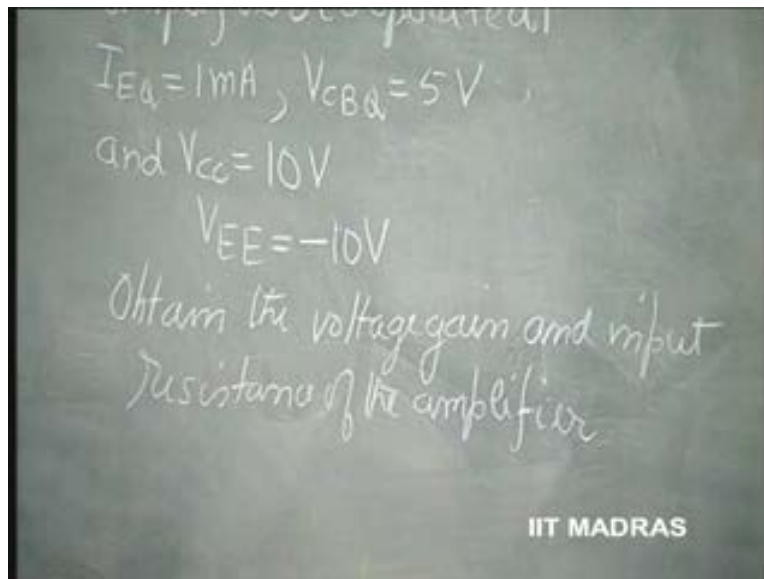 I_EQ = 1mA, V_CBQ = 5V
and V_CC = 10V
V_EE = -10V
Obtain the voltage gain and input
resistance of the amplifier
IIT MADRAS